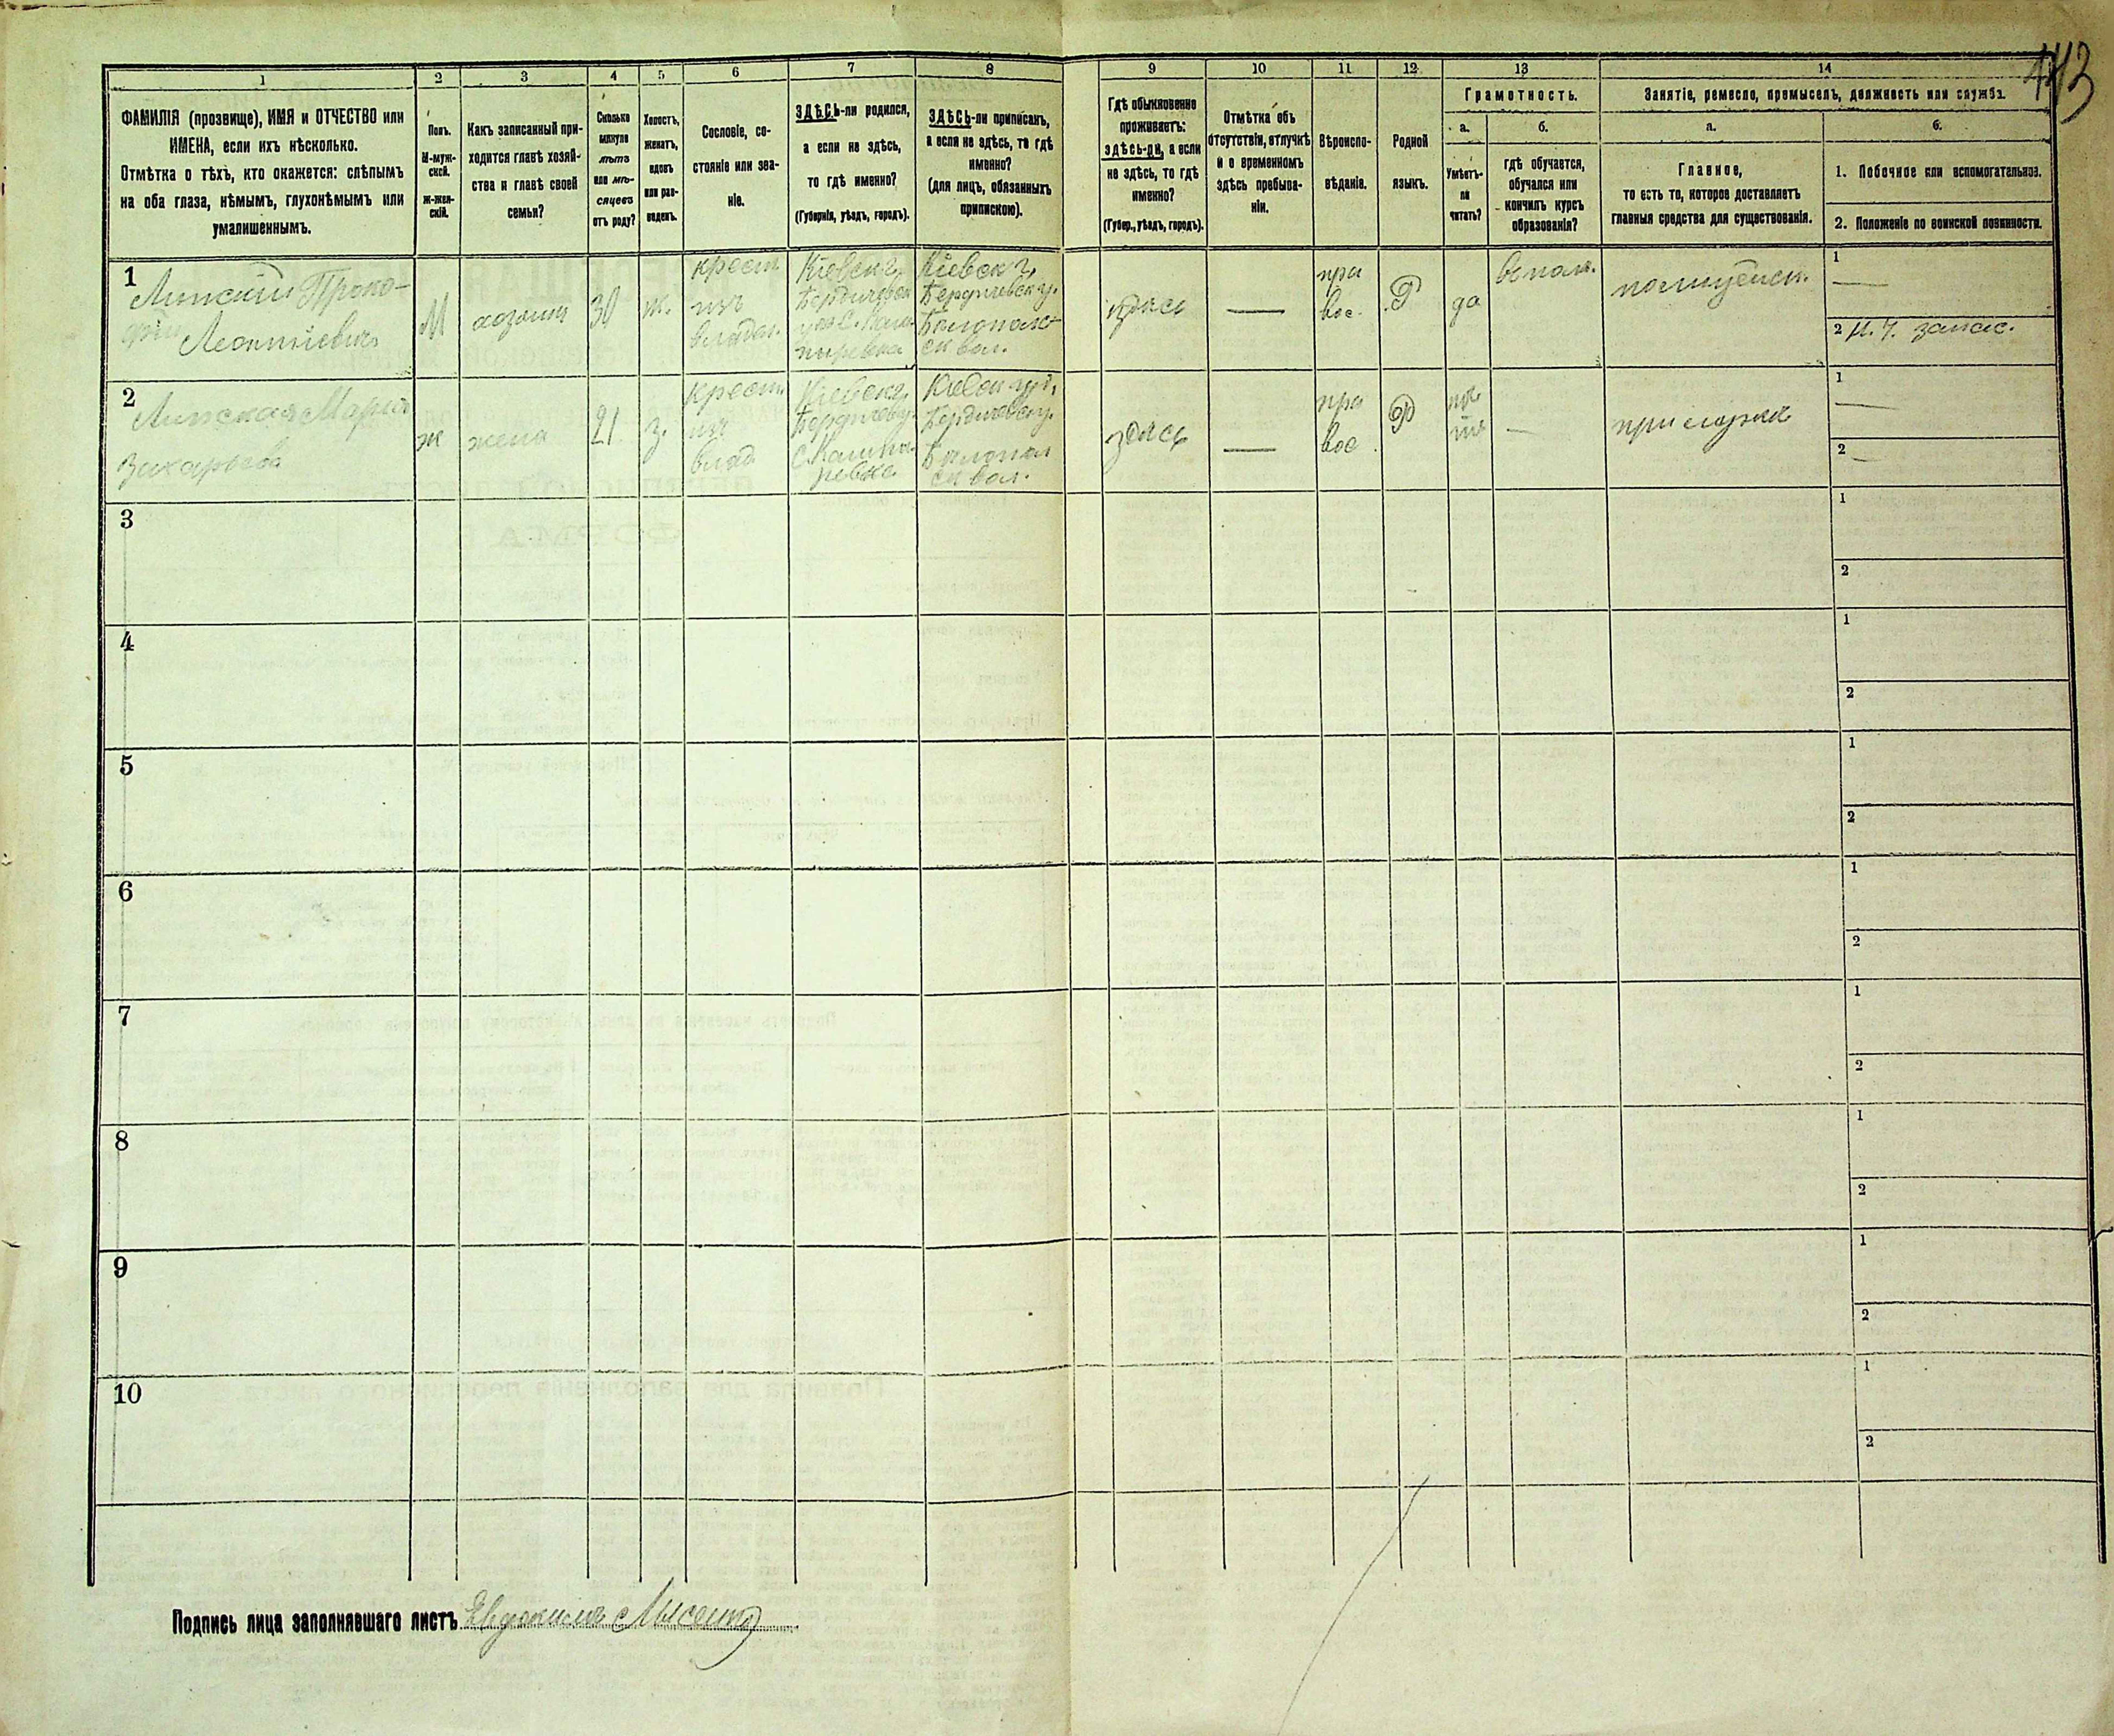 443
1
2
3
4
5
6
7
8
9
10
11
12
13
14
ФАМИЛІЯ (прозвище), ИМЯ и ОТЧЕСТВО или
ИМЕНА, если ихъ нѣсколько.
Отмѣтка о тѣхъ, кто окажется: слѣпымъ
на оба глаза, нѣмымъ, глухонѣмымъ или
умалишеннымъ.
Полъ.
М-муж-
ской.
ж-жен-
скій.
Какъ записанный при-
ходится главѣ хозяй-
ства и главѣ своей
семьи?
Сколько
минуло
лѣтъ
или мѣ-
сяцевъ
отъ роду?
Холостъ,
женатъ,
вдовъ
или раз-
веденъ.
Сословіе, со-
стояніе или зва-
ніе.
ЗДѢСЬ-ли родился,
а если не здѣсь,
то гдѣ именно?
(Губернія, уѣздъ, городъ).
ЗДѢСЬ-ли приписанъ,
а если не здѣсь, то гдѣ
именно?
(для лицъ, обязанныхъ
припискою).
Гдѣ обыкновенно
проживаетъ:
здѣсь-ли, а если
не здѣсь, то гдѣ
именно?
(Губер., уѣздъ, городъ).
Отмѣтка объ
отсутствіи, отлучкѣ
и о временномъ
здѣсь пребыва-
ніи.
Вѣроиспо-
вѣданіе.
Родной
языкъ.
Грамотность.
а.
Умѣетъ-
ли
читать?
б.
гдѣ обучается,
обучался или
кончилъ курсъ
образованія?
Занятіе, ремесло, промыселъ, должность или служба.
а.
Главное,
то есть то, которое доставляетъ
главныя средства для существованія.
б.
1. Побочное или вспомогательное.
2. Положеніе по воинской повинности.
1
Липскій Проко-
фій
Леонтіевичъ
М
хозяинъ
30
ж.
крест.
изъ
владѣл.
Кіевск г,
Бердичевск
Кіевск г,
Бердичевск у.
Бѣлополь
ск вол.
здѣсь
—
пра
вос.
Р
да
полицейск.
1
—
2 Н. Ч. запас.
2
Липская Марія
Захарьева
ж
жена
21
з.
Крест.
изъ
влад
Кіевск г,
Бердичев у.
Кіевск г,
Бердичевск у.
Бѣлопол
ск вол.
здѣсь
—
пра
вос
Р
нѣ
тъ
—
при мужѣ
1
—
2
—
3
1
2
4
1
2
5
1
2
6
1
2
7
1
2
8
1
2
9
1
2
10
1
2
Подпись лица заполнявшаго листъ Евдокимъ Лысенко